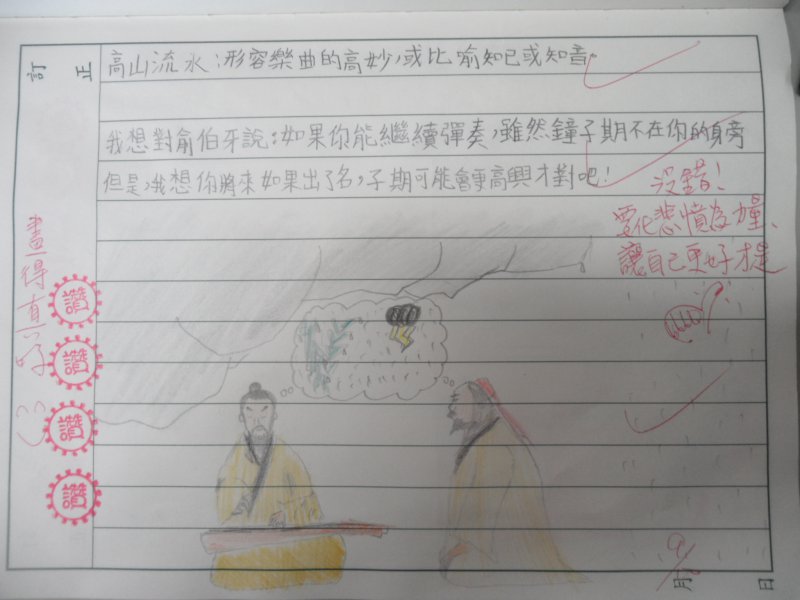 訂正
高山流水:形容樂曲的高妙,或比喻知己或知音。
我想對俞伯牙說:如果你能繼續彈奏,雖然鐘子期不在你的身旁
但是,我想你將來如果出了名,子期可能會更高興才對吧!
沒錯!
要化悲憤為力量、
讓自己更好才是
畫得真好
讚
讚
讚
讚
月
日